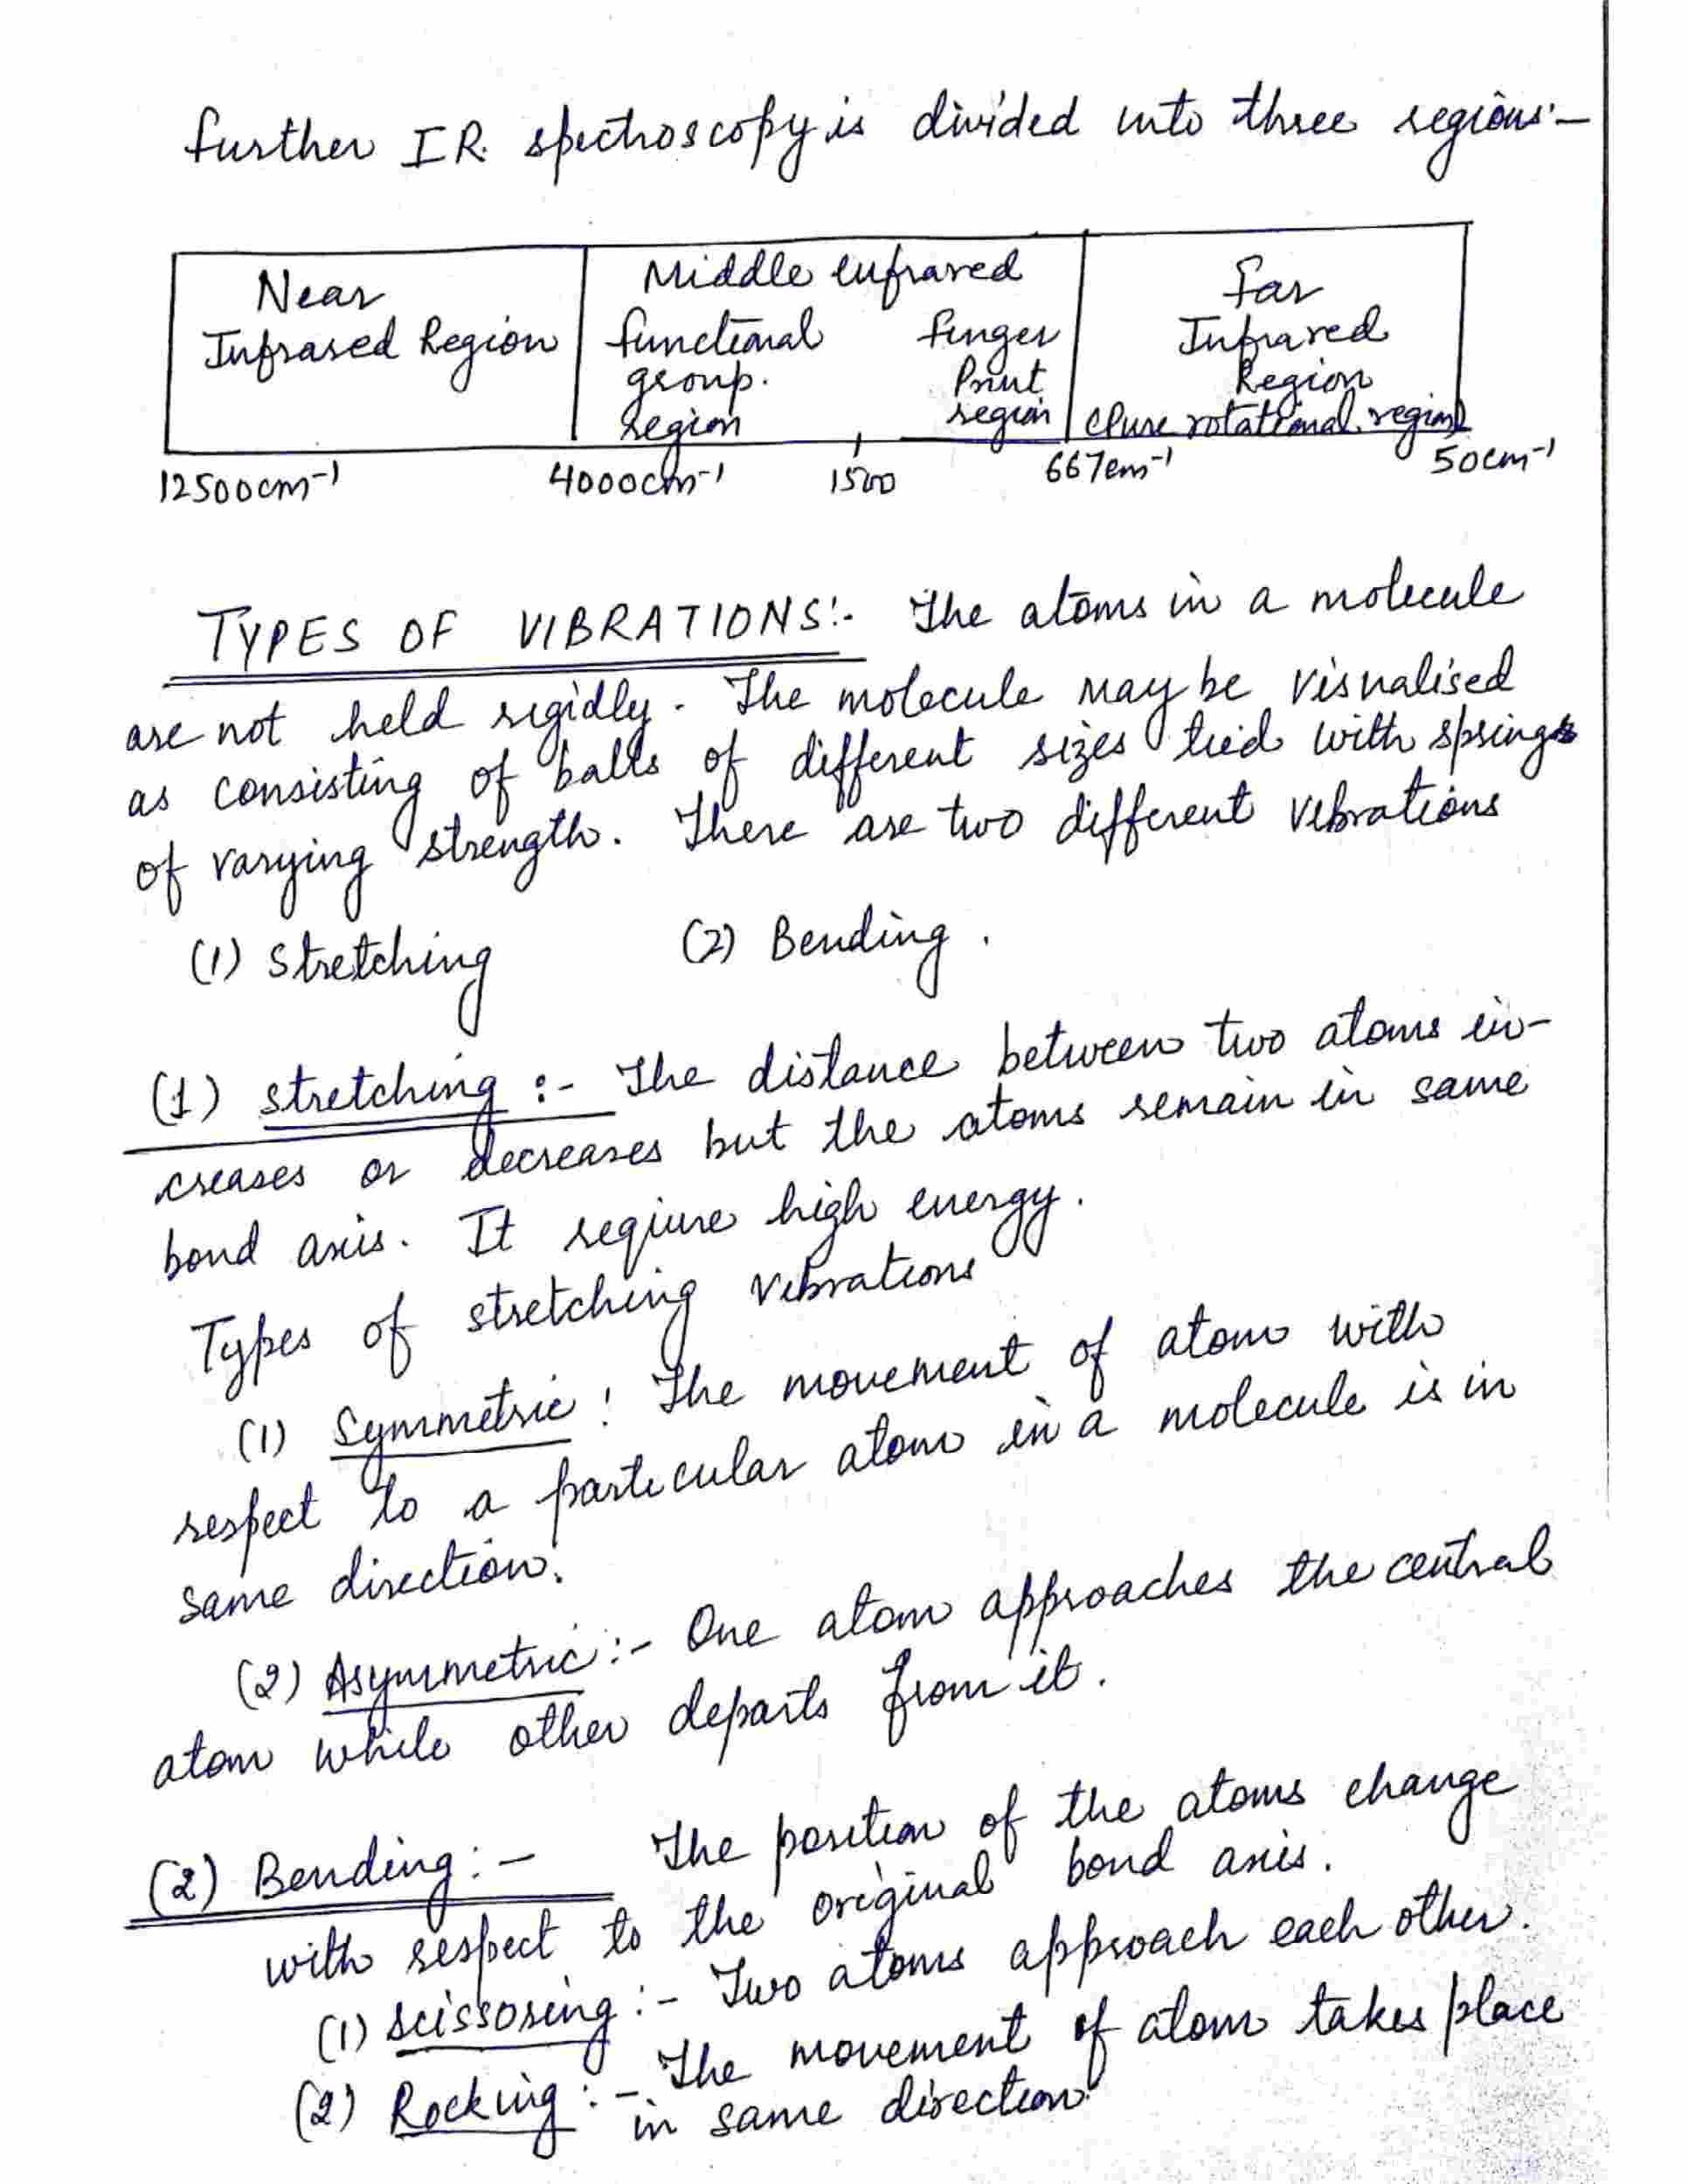 further I R. spectroscopy is divided into three regions:-
Near
Infrared Region
Middle infrared
functional
group.
region
finger
Print
region
far
Infrared
Region
(Pure rotational region)
12500cm⁻¹ 4000cm⁻¹ 1500 667cm⁻¹ 50cm⁻¹
TYPES OF VIBRATIONS:- The atoms in a molecule
are not held rigidly. The molecule may be visualised
as consisting of balls of different sizes tied with springs
of varying strength. There are two different vibrations
(1) Stretching (2) Bending.
(1) stretching :- The distance between two atoms in-
creases or decreases but the atoms remain in same
bond axis. It require high energy.
Types of stretching vibrations
(1) Symmetric : The movement of atom with
respect to a particular atom in a molecule is in
same direction.
(2) Asymmetric :- One atom approaches the central
atom while other departs from it.
(2) Bending :- The position of the atoms change
with respect to the original bond axis.
(1) scissoring :- Two atoms approach each other.
(2) Rocking :- The movement of atom takes place
in same direction.